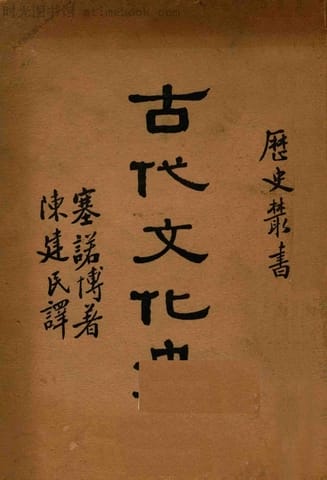 时光图书馆 atimebook.com
歷史叢書
古代文化
塞諾博著
陳建民譯